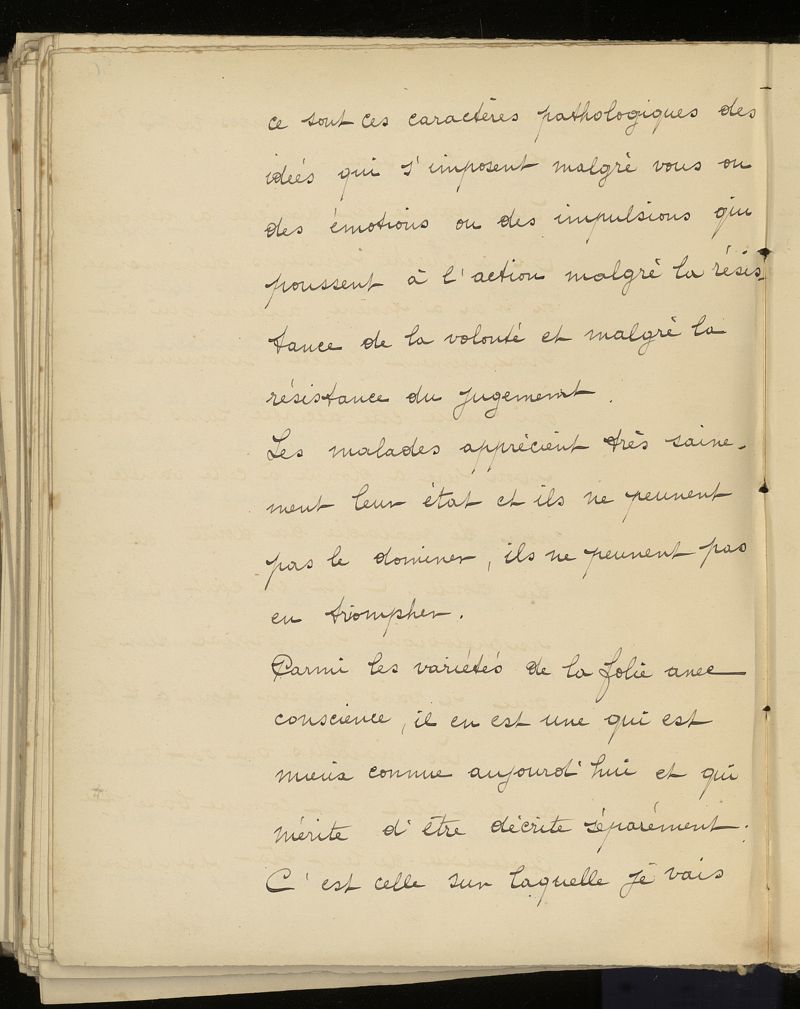 ce sont ces caractères pathologiques des
idées qui s'imposent malgré vous ou
des émotions ou des impulsions qui
poussent à l'action malgré la résis-
tance de la volonté et malgré la
résistance du jugement.
Les malades apprécient très saine-
ment leur état et ils ne peuvent
pas le dominer, ils ne peuvent pas
en triompher.
Parmi les variétés de la folie avec
conscience, il en est une qui est
mieux connue aujourd'hui et qui
mérite d'être décrite séparément.
C'est celle sur laquelle je vais